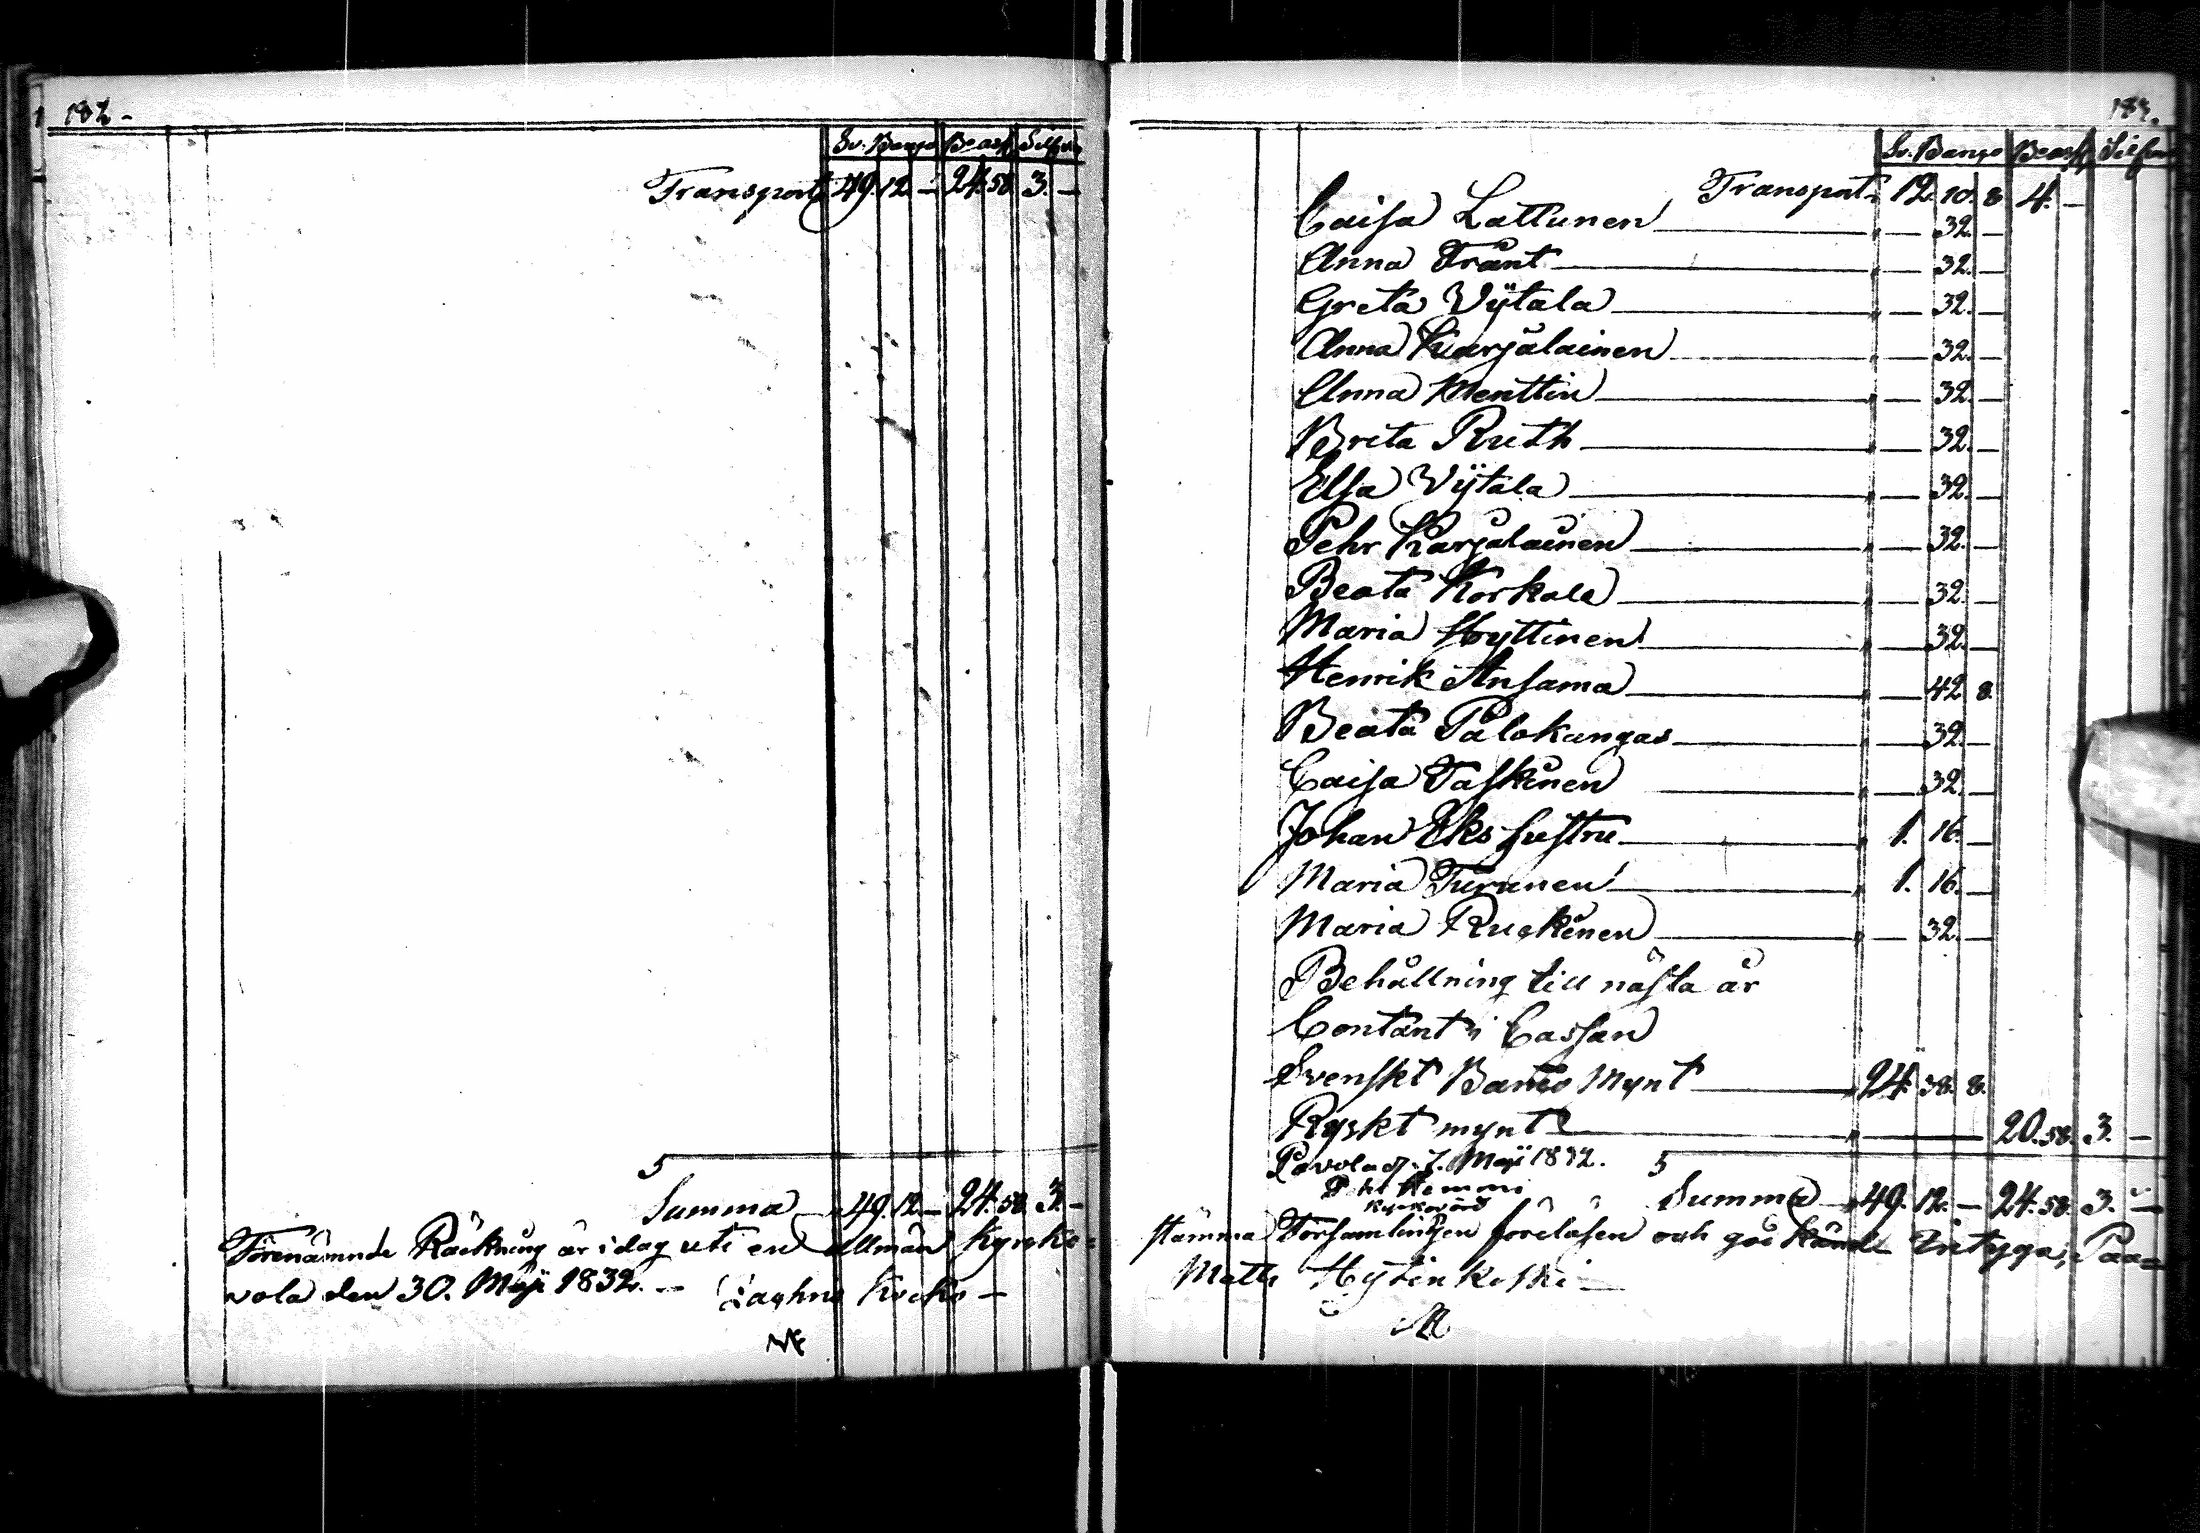 182.
Sv. Banco Bcoass. Silfver
Transport 49. 12. — 24. 58. 3. —
5
Summa 49. 12. — 24. 58. 3. —
Förenämnde Räkning är i dag uti en allmän Kyrko-
vola den 30. Maji 1832. —
183.
Sv. Banco Bcoass. Silfver
Transport 12. 10. 8. 4. —
Caisa Lattunen — 32. —
Anna Trant — 32. —
Greta Vÿtala — 32. —
Anna Karjalainen — 32. —
Anna Menttin — 32. —
Brita Ruth — 32. —
Elsa Vÿtala — 32. —
Pehr Karjalainen — 32. —
Beata Korkala — 32. —
Maria Hyttinen — 32. —
Henrik Ansama — 42. 8.
Beata Palokangas — 32. —
Caisa Taskinen — 32. —
Johan Eks hustru 1. 16. —
Maria Turunen 1. 16. —
Maria Ruskinen — 32. —
Behållning till nästa år
Contant i Cassan
Svenskt Banco Mynt 24. 38. 8.
Ryskt mynt — 20. 58. 3. —
Pavola d. 7. Maji 1832. 5
Summa 49. 12. — 24. 58. 3. —
stämma Församlingen föreläsen och god känd Intyga; Paa-
Matts Hyttinkoski